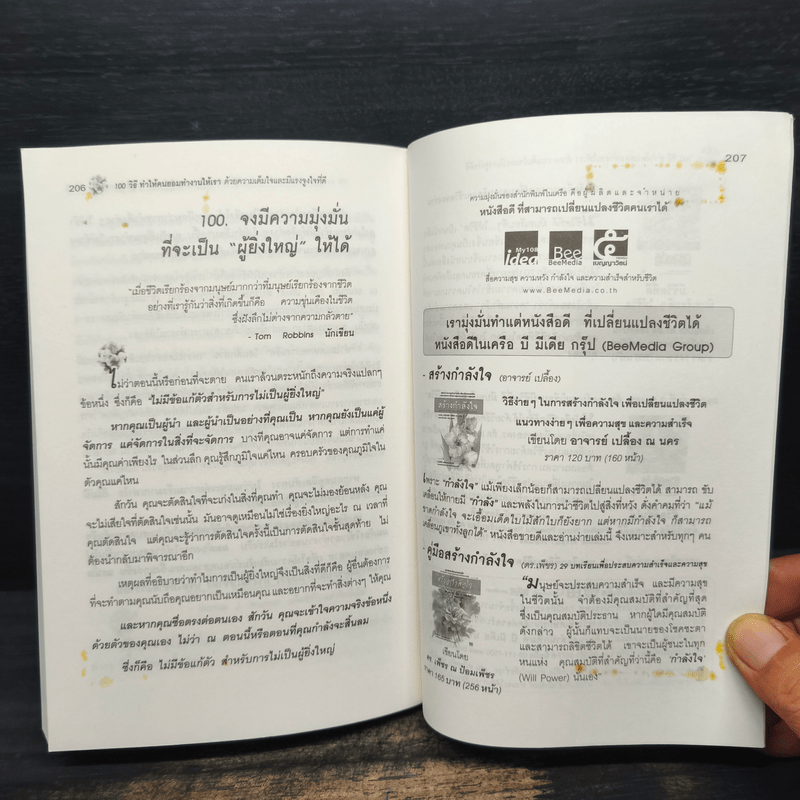 206
100 วิธี ทำให้คนยอมทำงานให้เรา ด้วยความเต็มใจและมีแรงจูงใจที่ดี
100. จงมีความมุ่งมั่น
ที่จะเป็น "ผู้ยิ่งใหญ่" ให้ได้
"เมื่อชีวิตเรียกร้องจากมนุษย์มากกว่าที่มนุษย์เรียกร้องจากชีวิต
อย่างที่เรารู้กันว่าสิ่งที่เกิดขึ้นก็คือ ความขุ่นเคืองในชีวิต
ซึ่งฝังลึกไม่ต่างจากความกลัวตาย"
- Tom Robbins นักเขียน
ไม่ว่าตอนนี้หรือก่อนที่จะตาย คนเราล้วนตระหนักถึงความจริงแปลกๆ
ข้อหนึ่ง ซึ่งก็คือ "ไม่มีข้อแก้ตัวสำหรับการไม่เป็นผู้ยิ่งใหญ่"
หากคุณเป็นผู้นำ และผู้นำเป็นอย่างที่คุณเป็น หากคุณยังเป็นแค่ผู้
จัดการ แค่จัดการในสิ่งที่จะจัดการ บางทีคุณอาจแค่จัดการ แต่การทำแค่
นั้นมีคุณค่าเพียงไร ในส่วนลึก คุณรู้สึกภูมิใจแค่ไหน ครอบครัวของคุณภูมิใจใน
ตัวคุณแค่ไหน
สักวัน คุณจะตัดสินใจที่จะเก่งในสิ่งที่คุณทำ คุณจะไม่มองย้อนหลัง คุณ
จะไม่เสียใจที่ตัดสินใจเช่นนั้น มันอาจดูเหมือนไม่ใช่เรื่องยิ่งใหญ่อะไร ณ เวลาที่
คุณตัดสินใจ แต่คุณจะรู้ว่าการตัดสินใจครั้งนี้เป็นการตัดสินใจขั้นสุดท้าย ไม่
ต้องนำกลับมาพิจารณาอีก
เหตุผลที่อธิบายว่าทำไมการเป็นผู้ยิ่งใหญ่จึงเป็นสิ่งที่ดีก็คือ ผู้อื่นต้องการ
ที่จะทำตามคุณนับถือคุณอยากเป็นเหมือนคุณ และอยากที่จะทำสิ่งต่างๆ ให้คุณ
และหากคุณซื่อตรงต่อตนเอง สักวัน คุณจะเข้าใจความจริงข้อหนึ่ง
ด้วยตัวของคุณเอง ไม่ว่า ณ ตอนนี้หรือตอนที่คุณกำลังจะสิ้นลม
ซึ่งก็คือ ไม่มีข้อแก้ตัว สำหรับการไม่เป็นผู้ยิ่งใหญ่
207
ความมุ่งมั่นของสำนักพิมพ์ในเครือ คือผู้ผลิตและจำหน่าย
หนังสือดี ที่สามารถเปลี่ยนแปลงชีวิตคนเราได้
My108 idea
Bee BeeMedia
เบญญาวัฒน์
สื่อความสุข ความหวัง กำลังใจ และความสำเร็จสำหรับชีวิต
www.BeeMedia.co.th
เรามุ่งมั่นทำแต่หนังสือดี ที่เปลี่ยนแปลงชีวิตได้
หนังสือดีในเครือ บี มีเดีย กรุ๊ป (BeeMedia Group)
- สร้างกำลังใจ (อาจารย์ เปลื้อง)
สร้างกำลังใจ
วิธีง่ายๆ ในการสร้างกำลังใจ เพื่อเปลี่ยนแปลงชีวิต
แนวทางง่ายๆ เพื่อความสุข และความสำเร็จ
เขียนโดย อาจารย์ เปลื้อง ณ นคร
ราคา 120 บาท (160 หน้า)
เพราะ "กำลังใจ" แม้เพียงเล็กน้อยก็สามารถเปลี่ยนแปลงชีวิตได้ สามารถ ขับ
เคลื่อนให้กายมี "กำลัง" และพลังในการนำชีวิตไปสู่สิ่งที่หวัง ดั่งคำคมที่ว่า "แม้
ราดกำลังใจ จะเอื้อมเด็ดใบไม้สักใบก็ยังยาก แต่หากมีกำลังใจ ก็สามารถ
เคลื่อนภูเขาทั้งลูกได้" หนังสือขายดีและอ่านง่ายเล่มนี้ จึงเหมาะสำหรับทุกๆ คน
- คู่มือสร้างกำลังใจ (ดร.เพียร) 29 บทเรียนเพื่อประสบความสำเร็จและความสุข
เขียนโดย
ดร. เพียร ณ ป้อมเพ็ชร
ราคา 165 บาท (256 หน้า)
"มนุษย์จะประสบความสำเร็จ และมีความสุข
ในชีวิตนั้น จำต้องมีคุณสมบัติที่สำคัญที่สุด
ซึ่งเป็นคุณสมบัติประธาน หากผู้ใดมีคุณสมบัติ
ดังกล่าว ผู้นั้นก็แทบจะเป็นนายของโชคชะตา
และสามารถลิขิตชีวิตได้ เขาจะเป็นผู้ชนะในทุก
หนแห่ง คุณสมบัติที่สำคัญที่ว่านี้คือ 'กำลังใจ'
(Will Power) นั้นเอง"